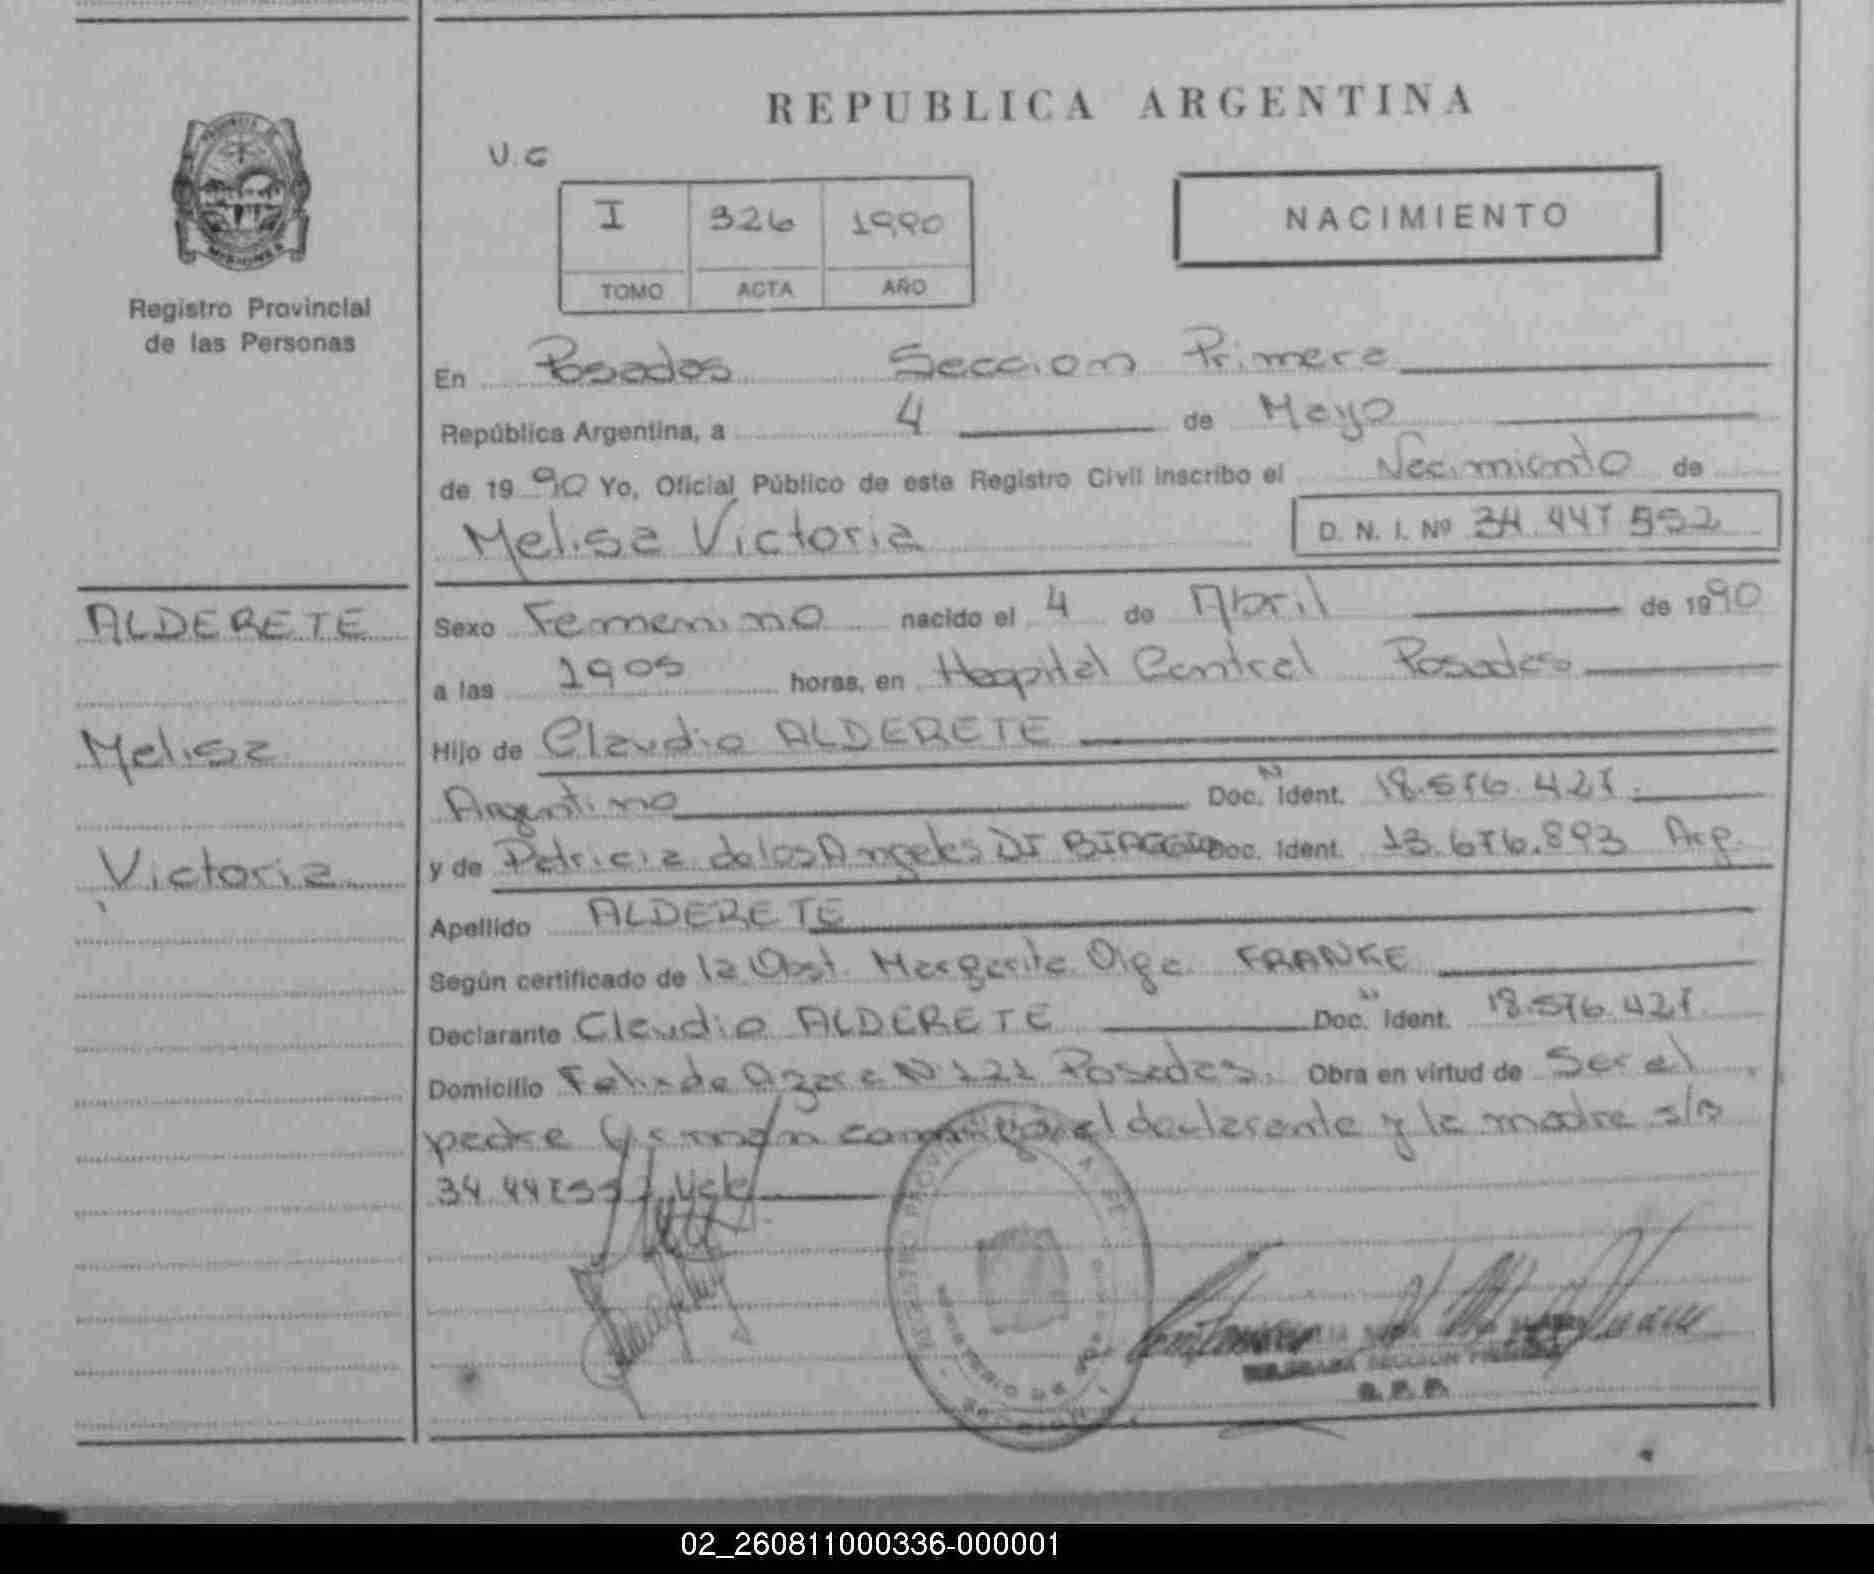 REPUBLICA ARGENTINA
U.C
I 326 1990
TOMO ACTA AÑO
NACIMIENTO
MISIONES
Registro Provincial
de las Personas
En Posadas Seccion Primera
República Argentina, a 4 de Mayo
de 1990 Yo, Oficial Público de este Registro Civil inscribo el Nacimiento de
Melisa Victoria D. N. I. Nº 34.447.552
ALDERETE
Melisa
Victoria
Sexo Femenino nacido el 4 de Abril de 1990
a las 1905 horas, en Hospital Central Posadas
Hijo de Claudio ALDERETE
Argentino Doc. Ident. 18.576.427.
y de Patricia de los Angeles DI BIAGGIO Doc. Ident. 13.676.893 Arg.
Apellido ALDERETE
Según certificado de la Obst. Margarita Olga FRANKE
Declarante Claudio ALDERETE Doc. Ident. 18.576.427.
Domicilio Felix de Azara N 121 Posadas. Obra en virtud de Ser el
padre y firman conmigo el declarante y la madre s/b
34.447.552 Vale
SECCION PRIMERA
R. P. P.
02_260811000336-000001